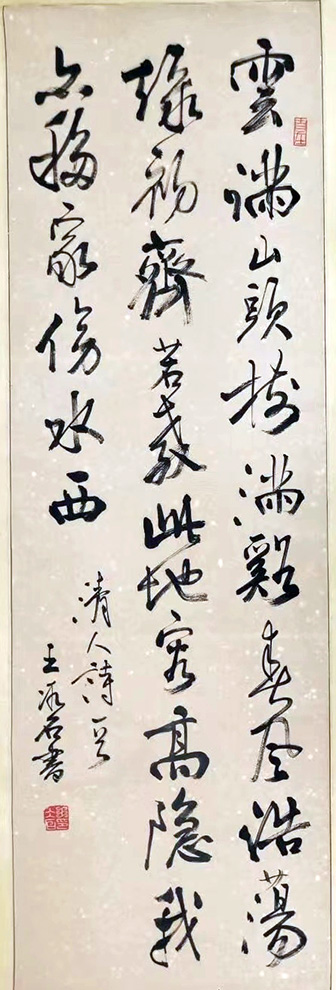 雲满山頭樹满谿春风浩蕩
绿初齊若教此地容高隐我
亦移家傍水西
清人詩一首
王冰石書